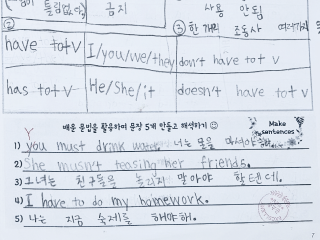 틀림없다
금지
사용 안됨
② 한 개의 조동사
have to+v
I/you/we/they
don't have to v
has to+v
He/She/it
doesn't have to v
배운 문법을 활용하여 문장 5개 만들고 해석하기 ☺
Make sentences
1) you must drink water 너는 물을
2) She musn't teasing her friends.
3) 그녀는 친구들을 놀리지 말아야 할텐데.
4) I have to do my homework.
5) 나는 지금 숙제를 해야해.
7